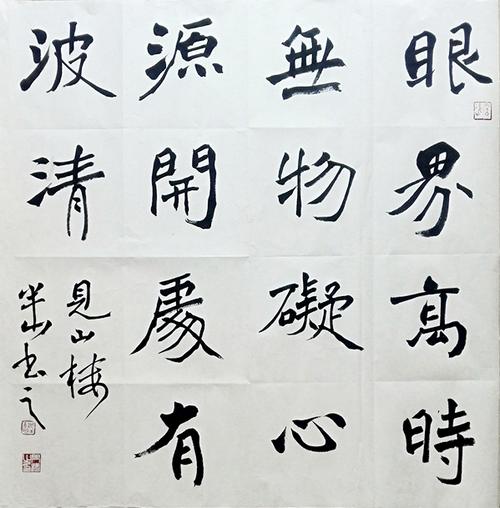 眼界高時
無物礙心
源開處有
波清
見山楼
半山书之